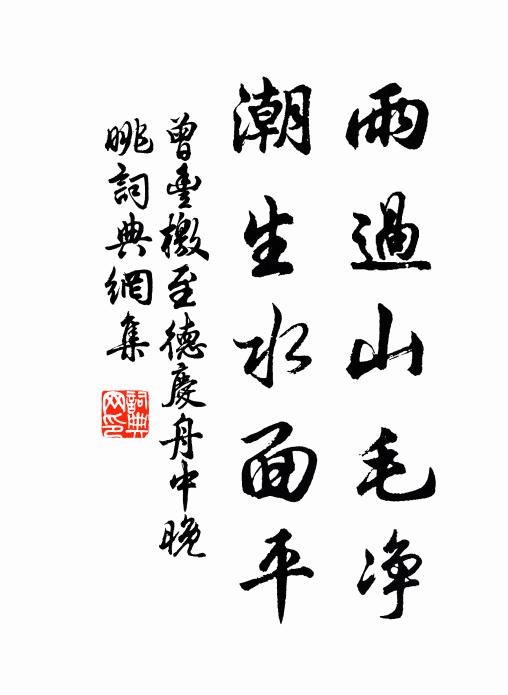 雨過山毛净
潮生水面平
曾豊檄至德慶舟中晚
眺詞典網集
詞典
网印